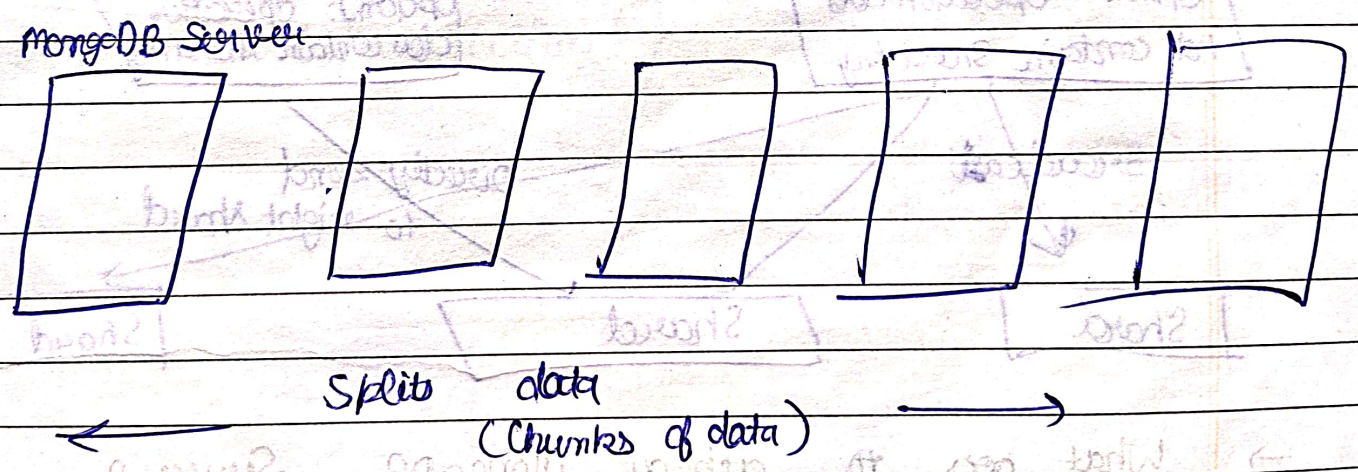 MongoDB Server
Splits data
(Chunks of data)